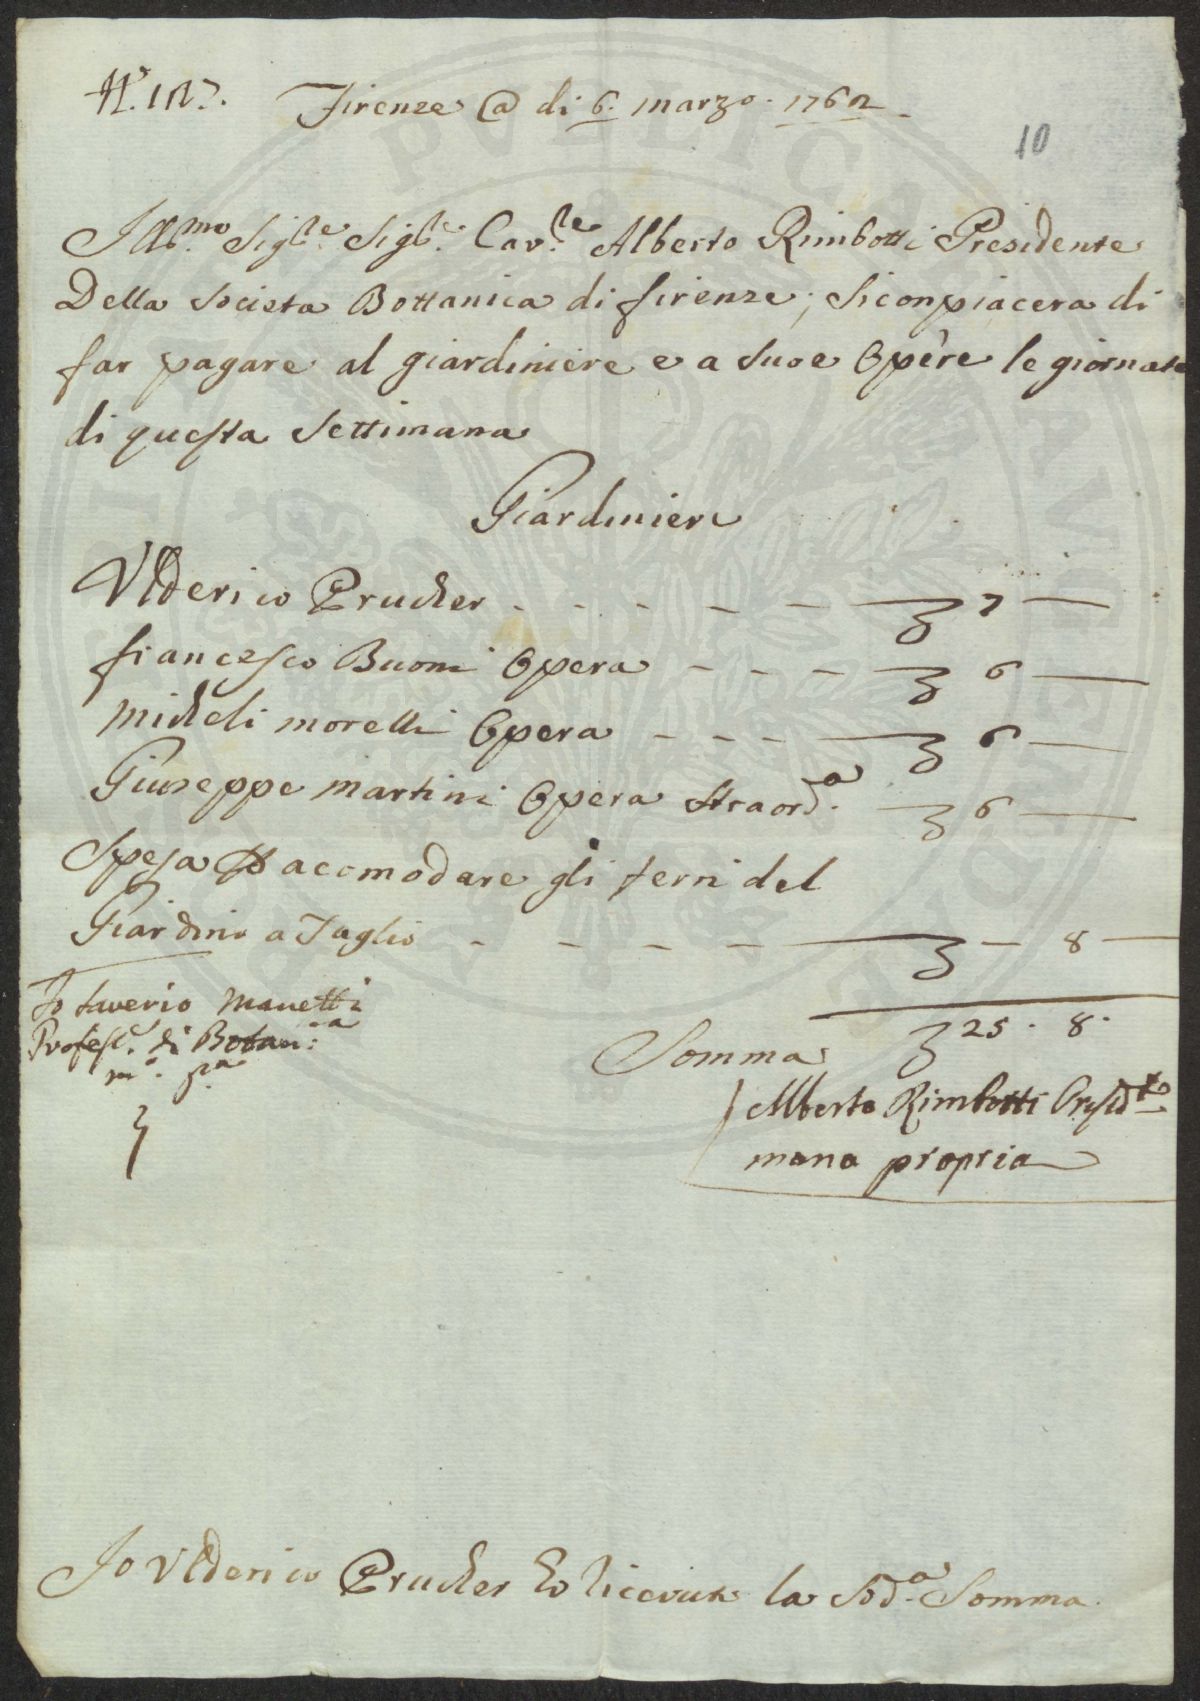 Firenze @ di 6. marzo. 1762
10
Ill.mo Sig.re Sig.re Cav.re Alberto Rimbotti Presidente
Della Societa Bottanica di firenze; Siconpiacera di
far pagare al giardiniere e a Suoe Opère le giornate
di questa Settimana
Giardinieri
Vlderico Prucher - - - - - 7 —
francesco Buoni Opera - - - 6 —
micheli morelli Opera - - - 6 —
Giuseppe martini Opera Straord.a 6 —
Spesa acomodare gli ferri del
Giardino a Taglio - - - - - 8 —
Io Saverio Manetti
Profess.e di Botan:ca
m.o p.a
Somma 25. 8.
Alberto Rimbotti Presid.te
mano propria
Io Vlderico Prucher ho ricevuto la Sod.a Somma.